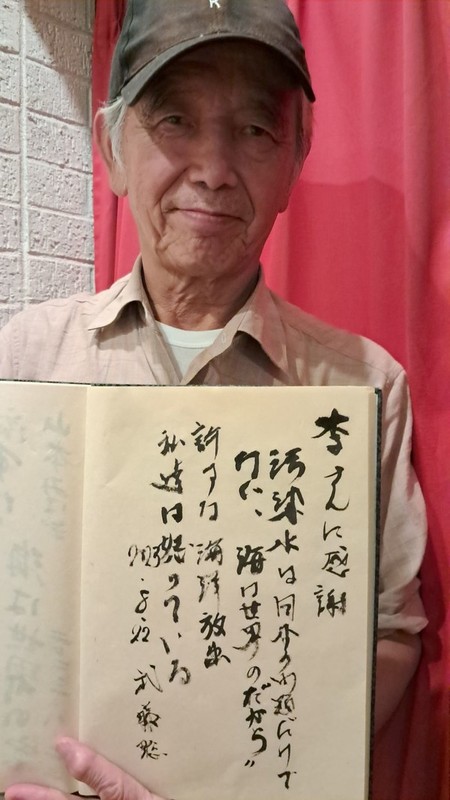 李さんに感謝
汚染水は日本の問題だけで
ない、海は世界のだから”
許すな 海洋放出
私達は怒っている
2023.8.22 武藤